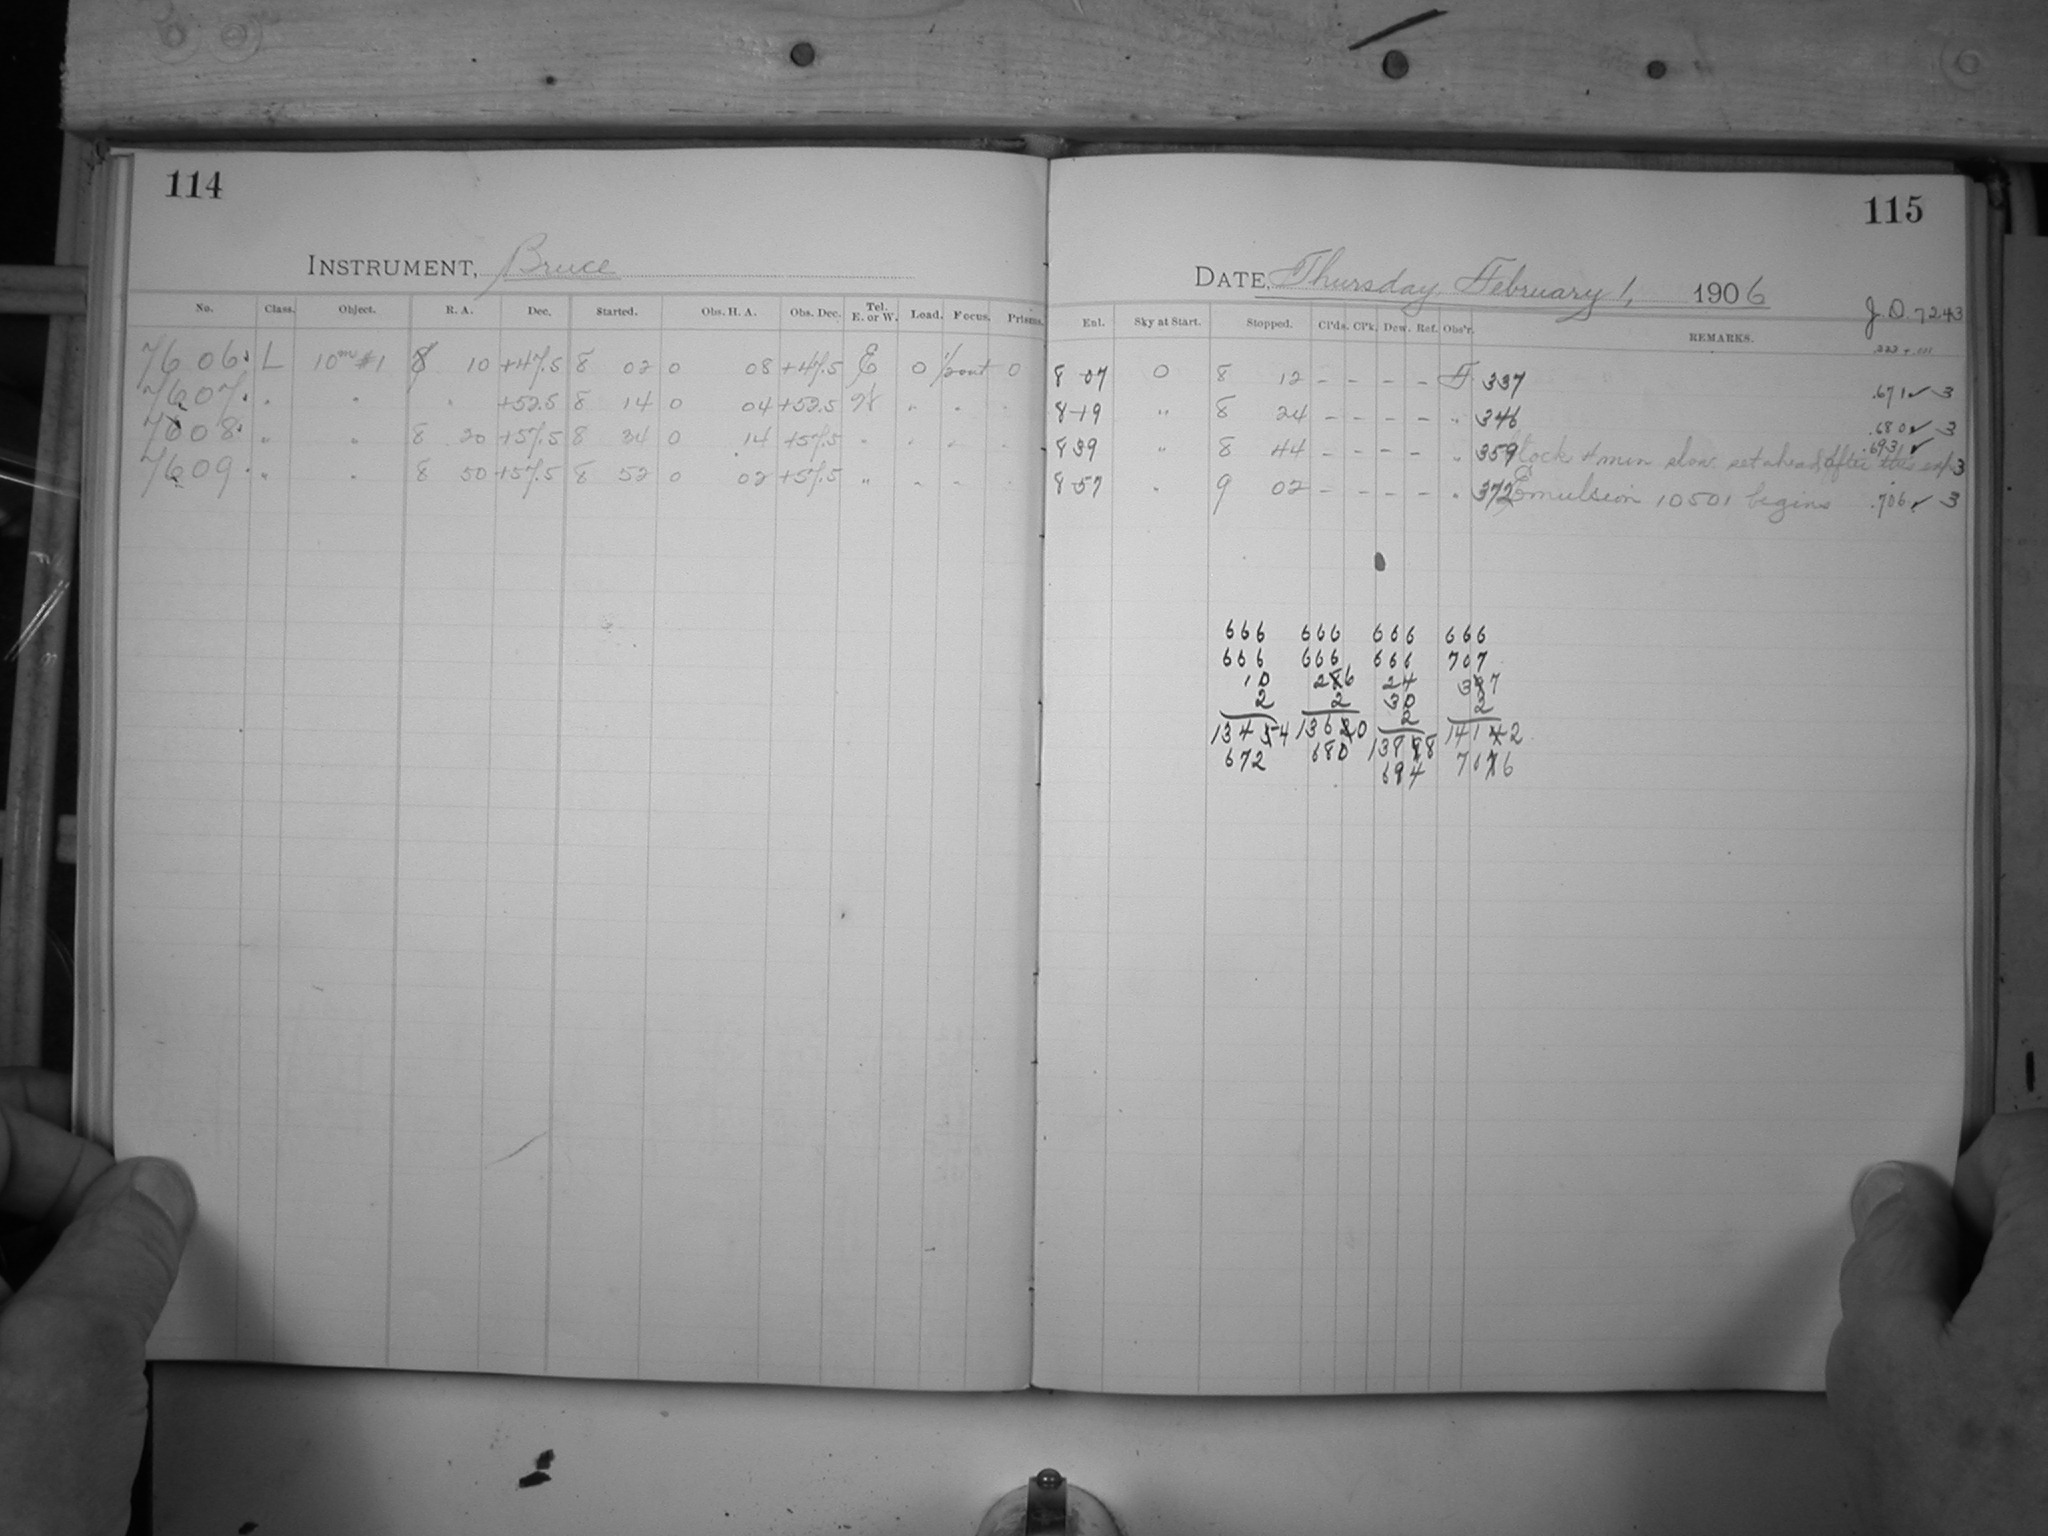 114
INSTRUMENT, Bruce
No. Class. Object. R. A. Dec. Started. Obs. H. A. Obs. Dec. Tel. E. or W. Load. Focus. Prisms.
7606 L 10m #1 8 10 +47.5 8 02 0 08 +47.5 E 0 0
7607 " " " +52.5 8 14 0 04 +52.5 W " " "
7608 " " 8 20 +57.5 8 34 0 14 +57.5 " " " "
7609 " " 8 50 +57.5 8 52 0 02 +57.5 " " " "
115
DATE, Thursday February 1, 1906
J.D. 7243
Enl. Sky at Start. Stopped. Cl'ds. Cl'k. Dew. Ref. Obs'r. REMARKS.
8 07 0 8 12 - - - - 337 .671 ✓ 3
8 19 " 8 24 - - - - " 346 .680 ✓ 3
8 39 " 8 44 - - - - " 359 Clock 4 min slow set ahead after this exp .693 ✓ 3
8 57 " 9 02 - - - - " 372 Emulsion 10501 begins .706 ✓ 3
666 666 666 666
666 666 666 707
10 286 24 397
2 2 30 2
13454 13620 2 14142
672 680 13888 7076
694